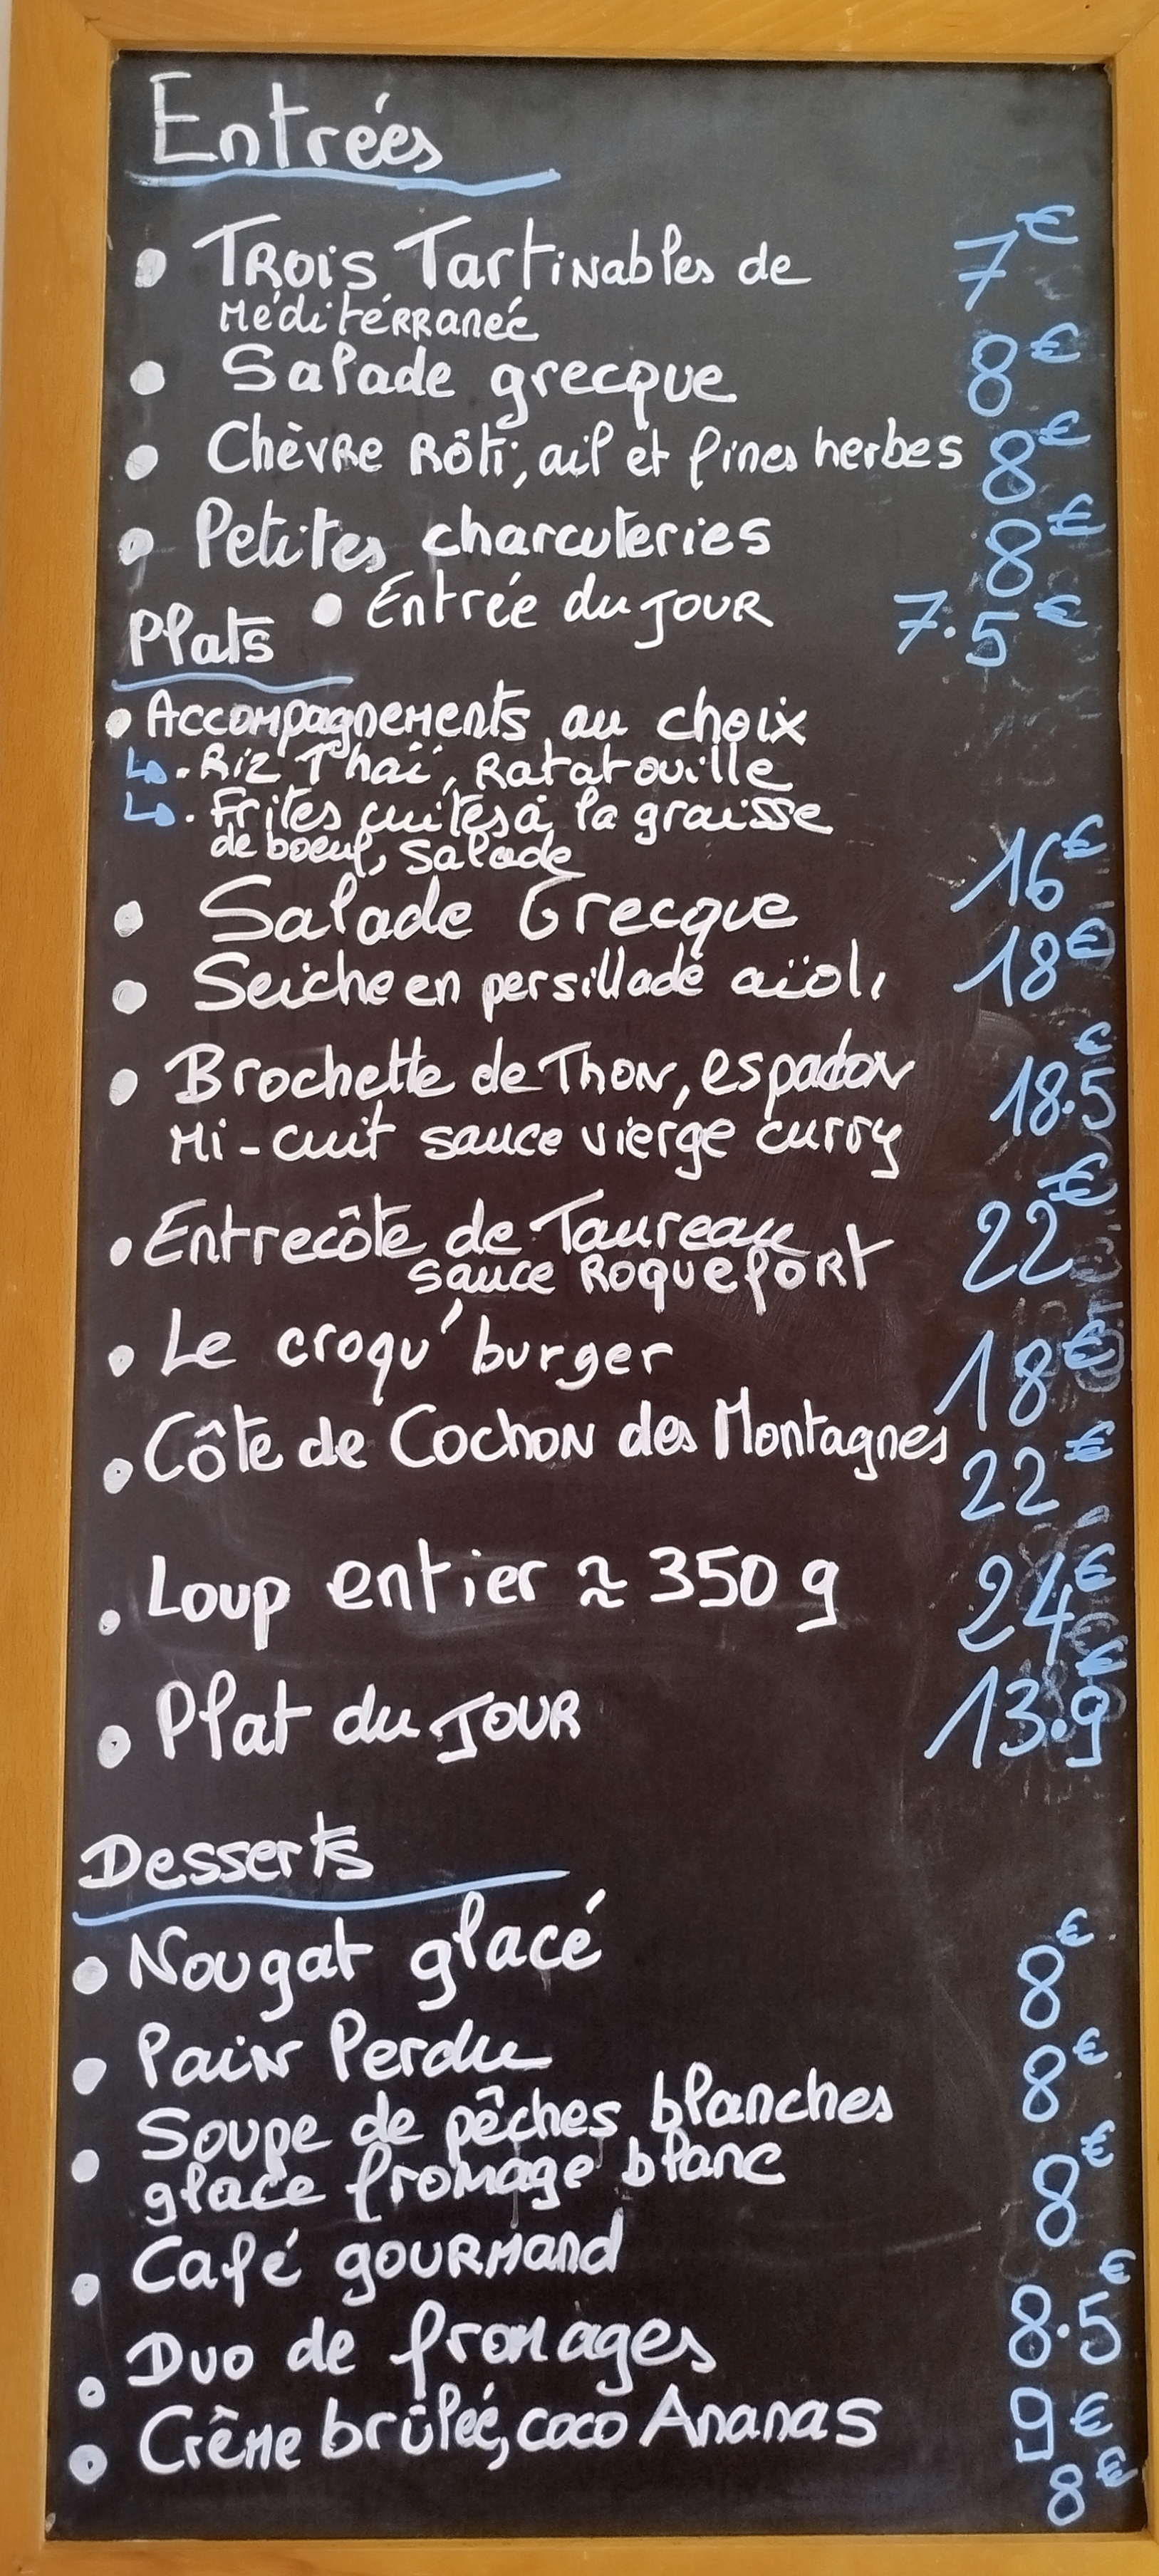 Entrées
• Trois Tartinables de 7€
Méditérranée
• Salade grecque 8€
• Chèvre Rôti, ail et fines herbes 8€
• Petites charcuteries 8€
• Entrée du jour 7.5€
Plats
• Accompagnements au choix
↳ . Riz Thaï, Ratatouille
↳ . Frites cuites à la graisse
de boeuf, Salade
• Salade Grecque 16€
• Seiche en persillade aïoli 18€
• Brochette de Thon, espadon 18.5€
Mi-cuit sauce vierge curry
• Entrecôte de Taureau 22€
sauce Roquefort
• Le croqu'burger 18€
• Côte de Cochon des Montagnes 22€
• Loup entier ≈ 350 g 24€
• Plat du jour 13.9€
Desserts
• Nougat glacé 8€
• Pain Perdu 8€
• Soupe de pêches blanches 8€
glace fromage blanc
• Café gourmand 8.5€
• Duo de fromages 9€
• Crème brûlée, coco Ananas 8€